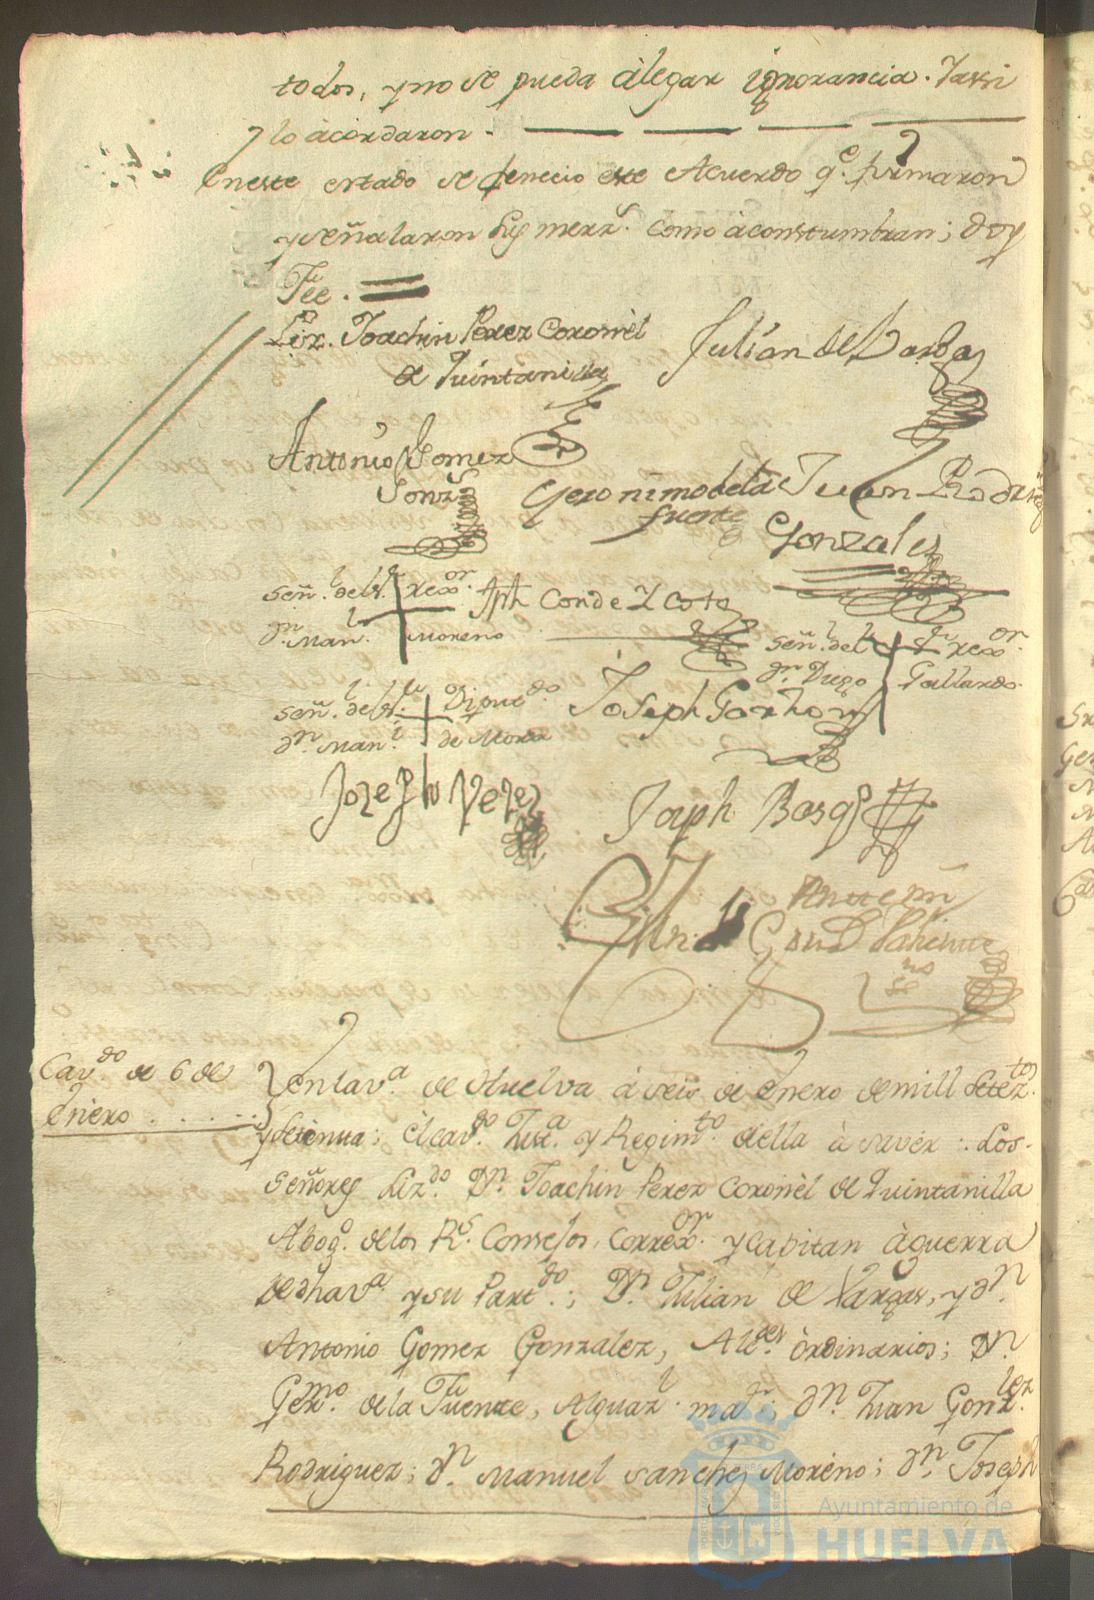 todos, y no se pueda àlegar ignorancia. Yassi
lo àcordaron
Eneste estado se fenecio este Acuerdo q.e firmaron
y señalaron sus merz.s como àconstumbran; doy
Fee.
Liz.do Joachin Perez Coronèl
de Quintanilla
Julian de Bargas
Antonio Gomez
Gonz.s
Geronimo dela
fuente
Juan Rodrig
Gonzales
señ.l del S.r rexor.
Jph Conde Y Coto
dn. Man.l Moreno
señ.l del S.r rexor.
dn. Diego Gallardo
señ.l del S.r Diput.do
dn. Man.l de Mora
Joseph Garzon
Jozeph Velez
Joph Bosq
Antte mi
Cav.do de 6 de
Enero
En la v.a de Huelva à seis de Enero de mill setez.tos
y setenta; èl cav.do Just.a y Regim.to de ella à saver: Los
señores Liz.do Dn. Joachin Perez Coronèl de Quintanilla
Abog.o de los R.s Consejos, Correx.or y capitan àguerra
de dha v.a y su Part.do; Dn. Julian de Vargas, y dn.
Antonio Gomez Gonzalez, Alc.des òrdinarios; Dn.
Ger.mo de la Fuente, Alguaz.l ma.r; dn. Juan Gonz.lez
Rodriguez; dn. Manuel Sanchez Moreno; dn. Joseph
Ayuntamiento de
HUELVA